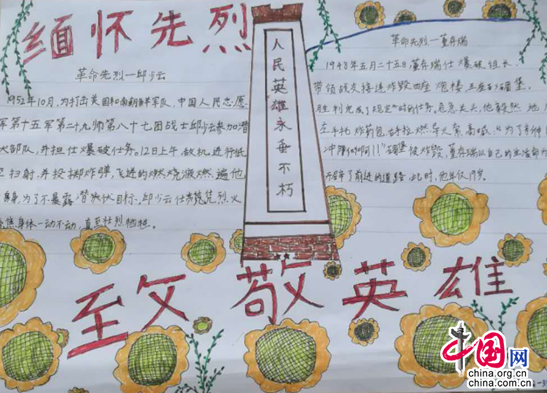 缅怀先烈
革命先烈—邱少云
1952年10月,为打击美国和南朝鲜军队,中国人民志愿
军第十五军第二十九师第八十七团战士邱少云参加潜
伏部队,并担任爆破任务。12日上午,敌机进行低
空扫射,并投掷炸弹,飞迸的燃烧液燃遍他
全身,为了不暴露
烈火
身体一动不动,直至壮烈牺牲
人民英雄永垂不朽
革命先烈—董存瑞
1948年5月二十五日董存瑞任爆破组长,
带领战友接连炸毁四座炮楼、五座碉堡,
胜利完成了规定的任务,
左手托炸药包,右手拉燃导火索,高喊:"为了新中国
冲
碉堡被炸毁,董存瑞以自己的生命
了前进的道路
致敬英雄
中国网
china.org.cn
china.com.cn